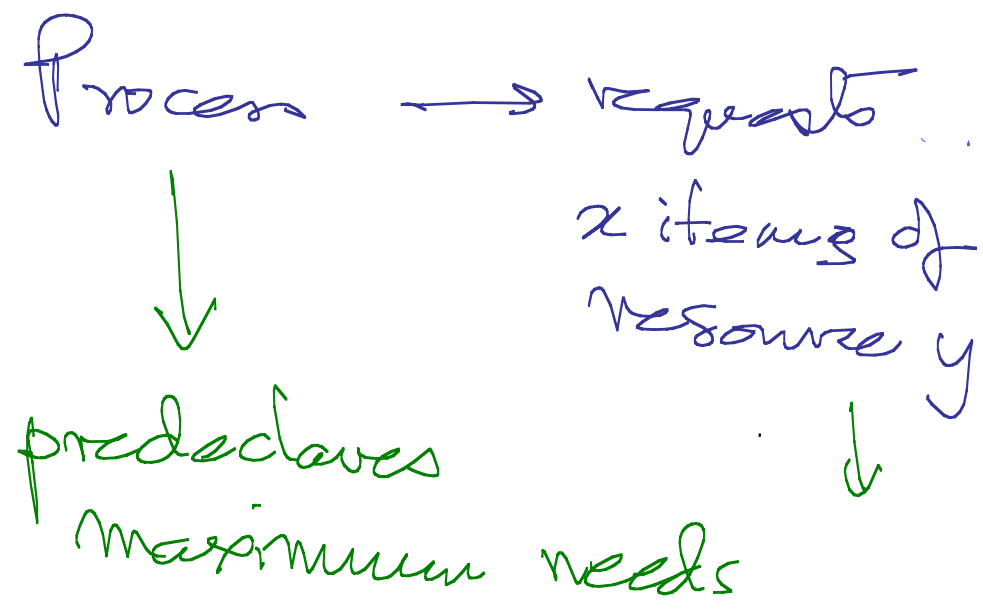 Process → requests
x items of
resource y
predeclares
maximum needs